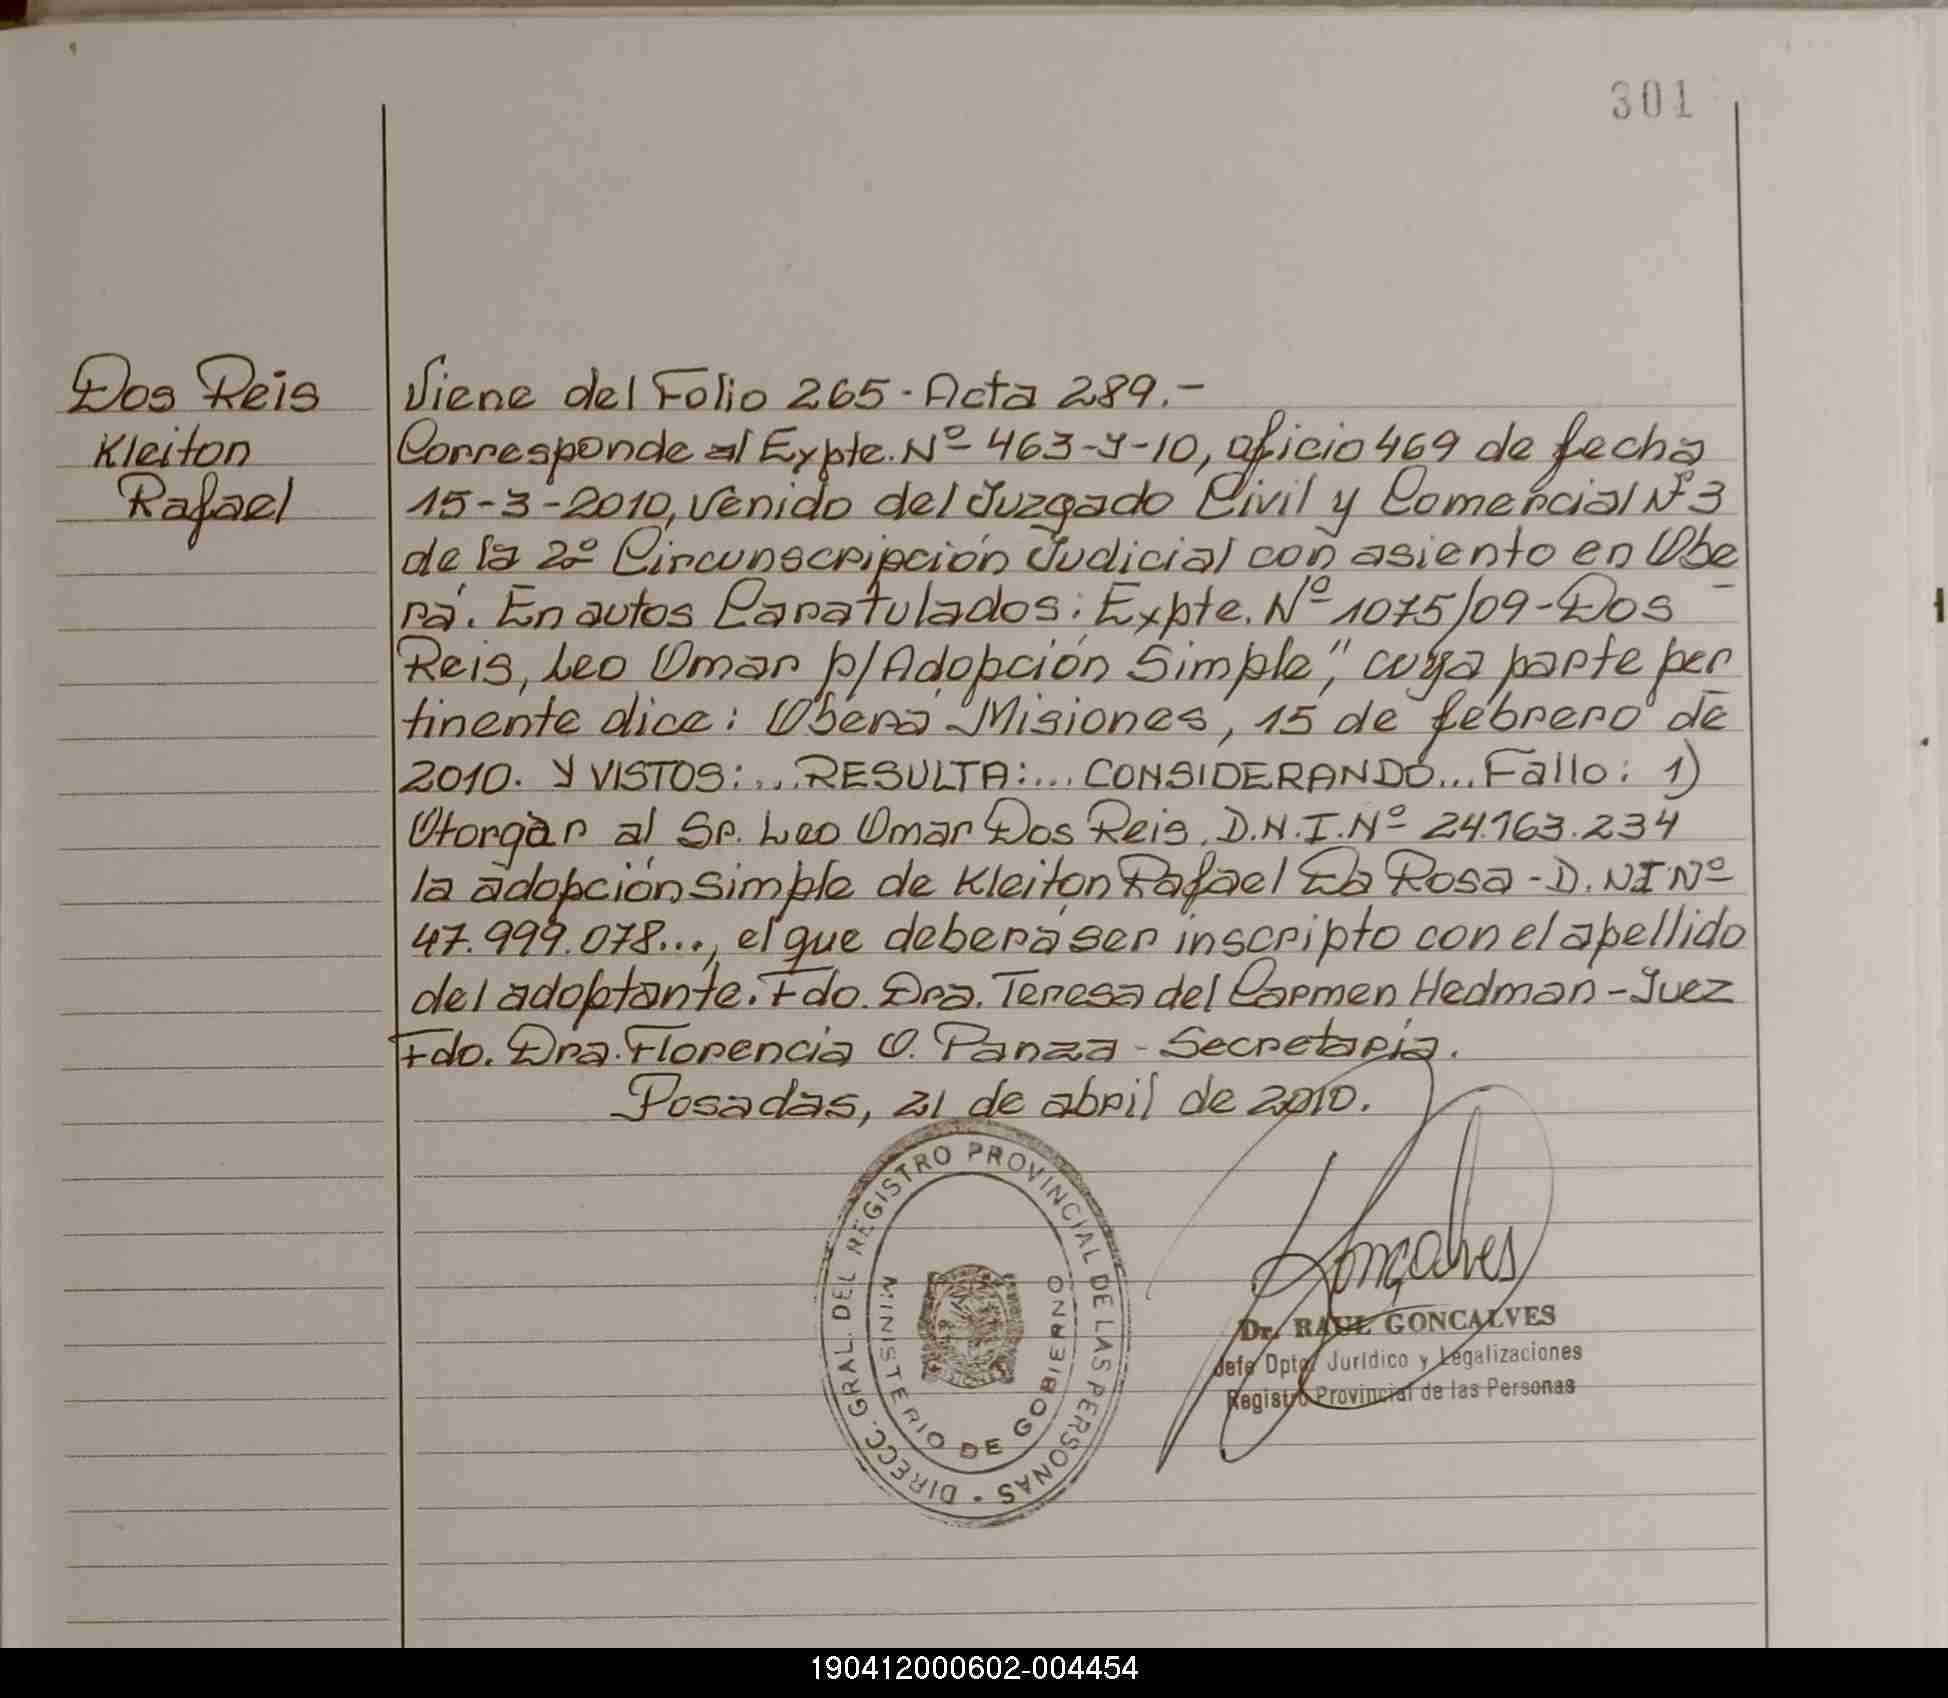 301
Dos Reis
Kleiton
Rafael
Viene del Folio 265 - Acta 289.-
Corresponde al Expte. Nº 463-Y-10, oficio 469 de fecha
15-3-2010, venido del Juzgado Civil y Comercial Nº 3
de la 2º Circunscripción Judicial con asiento en Obe
rá. En autos Caratulados: Expte. Nº 1075/09 - Dos
Reis, Leo Omar p/Adopción Simple", cuya parte per
tinente dice: Oberá Misiones, 15 de febrero de
2010. Y VISTOS:... RESULTA:... CONSIDERANDO... Fallo: 1)
Otorgar al Sr. Leo Omar Dos Reis, D.N.I. Nº 24.163.234
la adopción simple de Kleiton Rafael Da Rosa - D.NI Nº
47.999.078..., el que deberá ser inscripto con el apellido
del adoptante. Fdo. Dra. Teresa del Carmen Hedman - Juez
Fdo. Dra. Florencia O. Panza - Secretaria.
Posadas, 21 de abril de 2010.
DIRECC. GRAL. DEL REGISTRO PROVINCIAL DE LAS PERSONAS
MINISTERIO DE GOBIERNO
Goncalves
Dr. RAUL GONCALVES
Jefe Dpto. Jurídico y Legalizaciones
Registro Provincial de las Personas
190412000602-004454